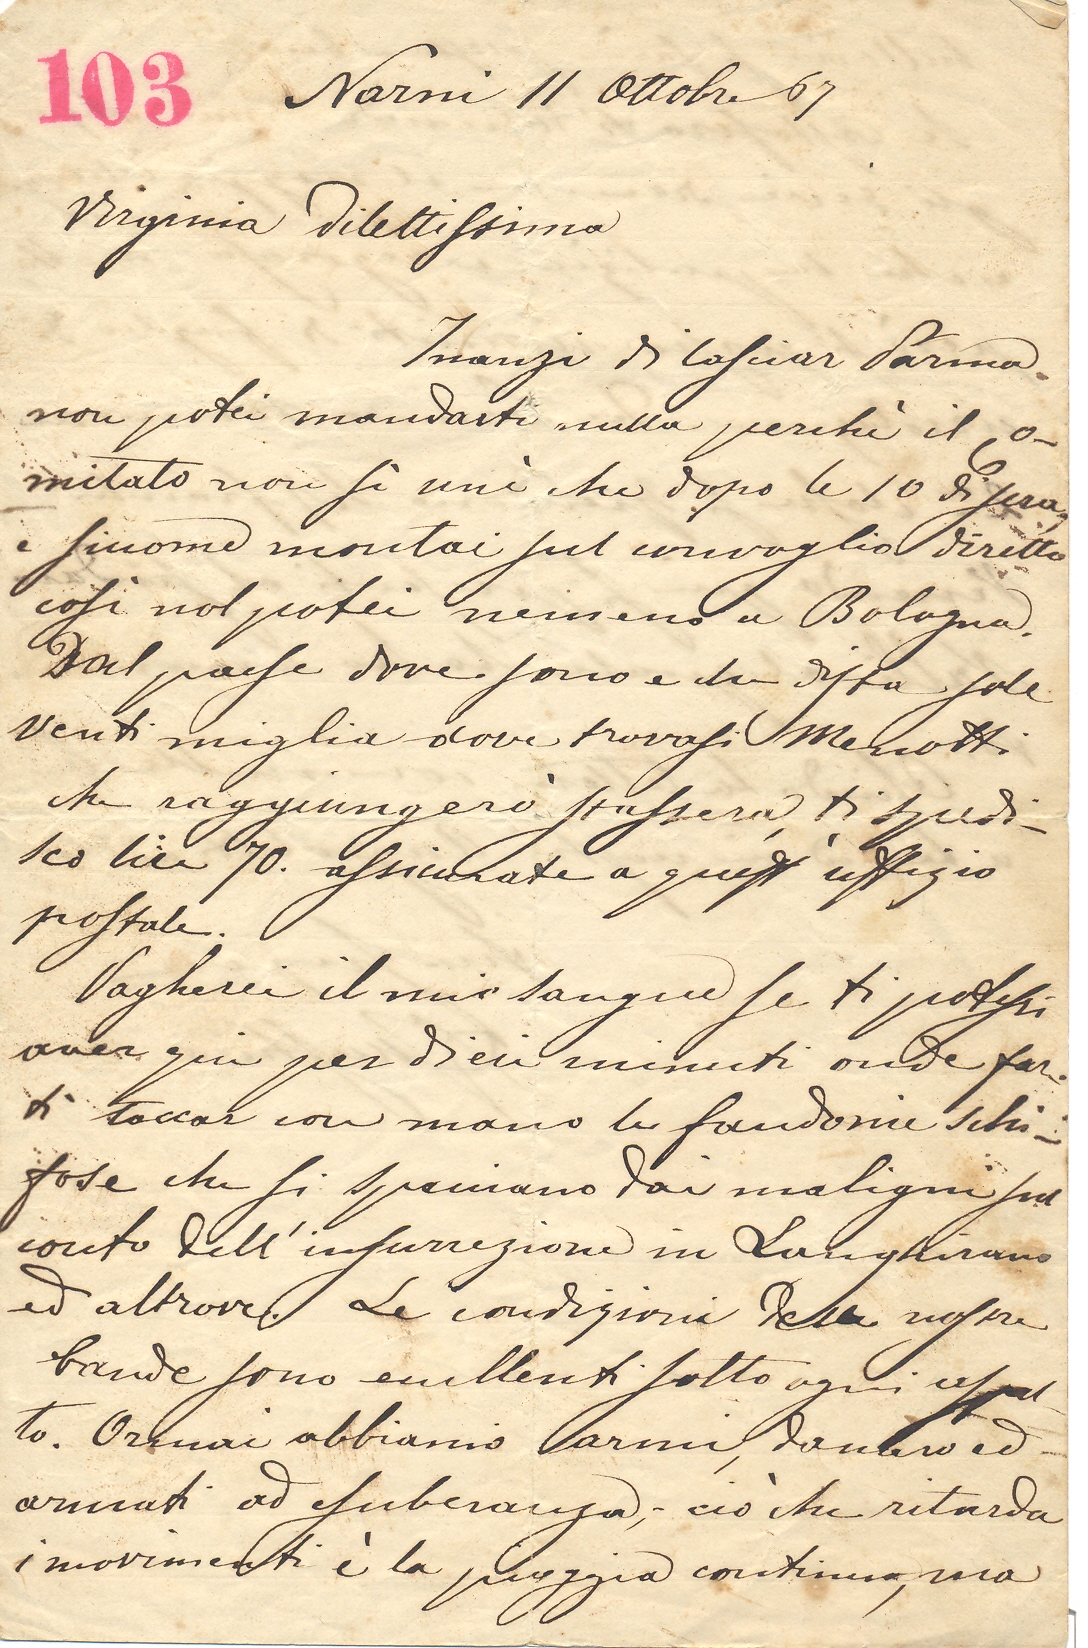 103
Narni 11 Ottobre 67
Virginia dilettissima
Inanzi di lasciar Parma
non potei mandarti nulla perchè il Co-
mitato non si unì che dopo le 10 di sera,
e siccome montai sul convoglio diretto
così nol potei nemeno a Bologna.
Dal paese dove sono e che dista sole
venti miglia dove trovasi Menotti
che raggiungerò stassera, ti spedi-
sco lire 70. assicurate a quest' uffizio
postale.
Pagherei il mio sangue se ti potessi
aver qui per dieci minuti onde far-
ti toccar con mano le fandonie schi-
fose che si spacciano dai maligni sul
conto dell'insurrezione in Langhirano
ed altrove. Le condizioni delle nostre
bande sono eccellenti sotto ogni aspet-
to. Ormai abbiamo armi, danaro ed
armati ad esuberanza; ciò che ritarda
i movimenti è la pioggia continua, ma